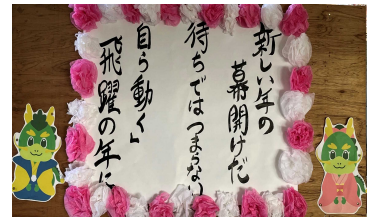 新しい年の
幕開けだ
待ちではつまらない
自ら動く」
「飛躍の年に